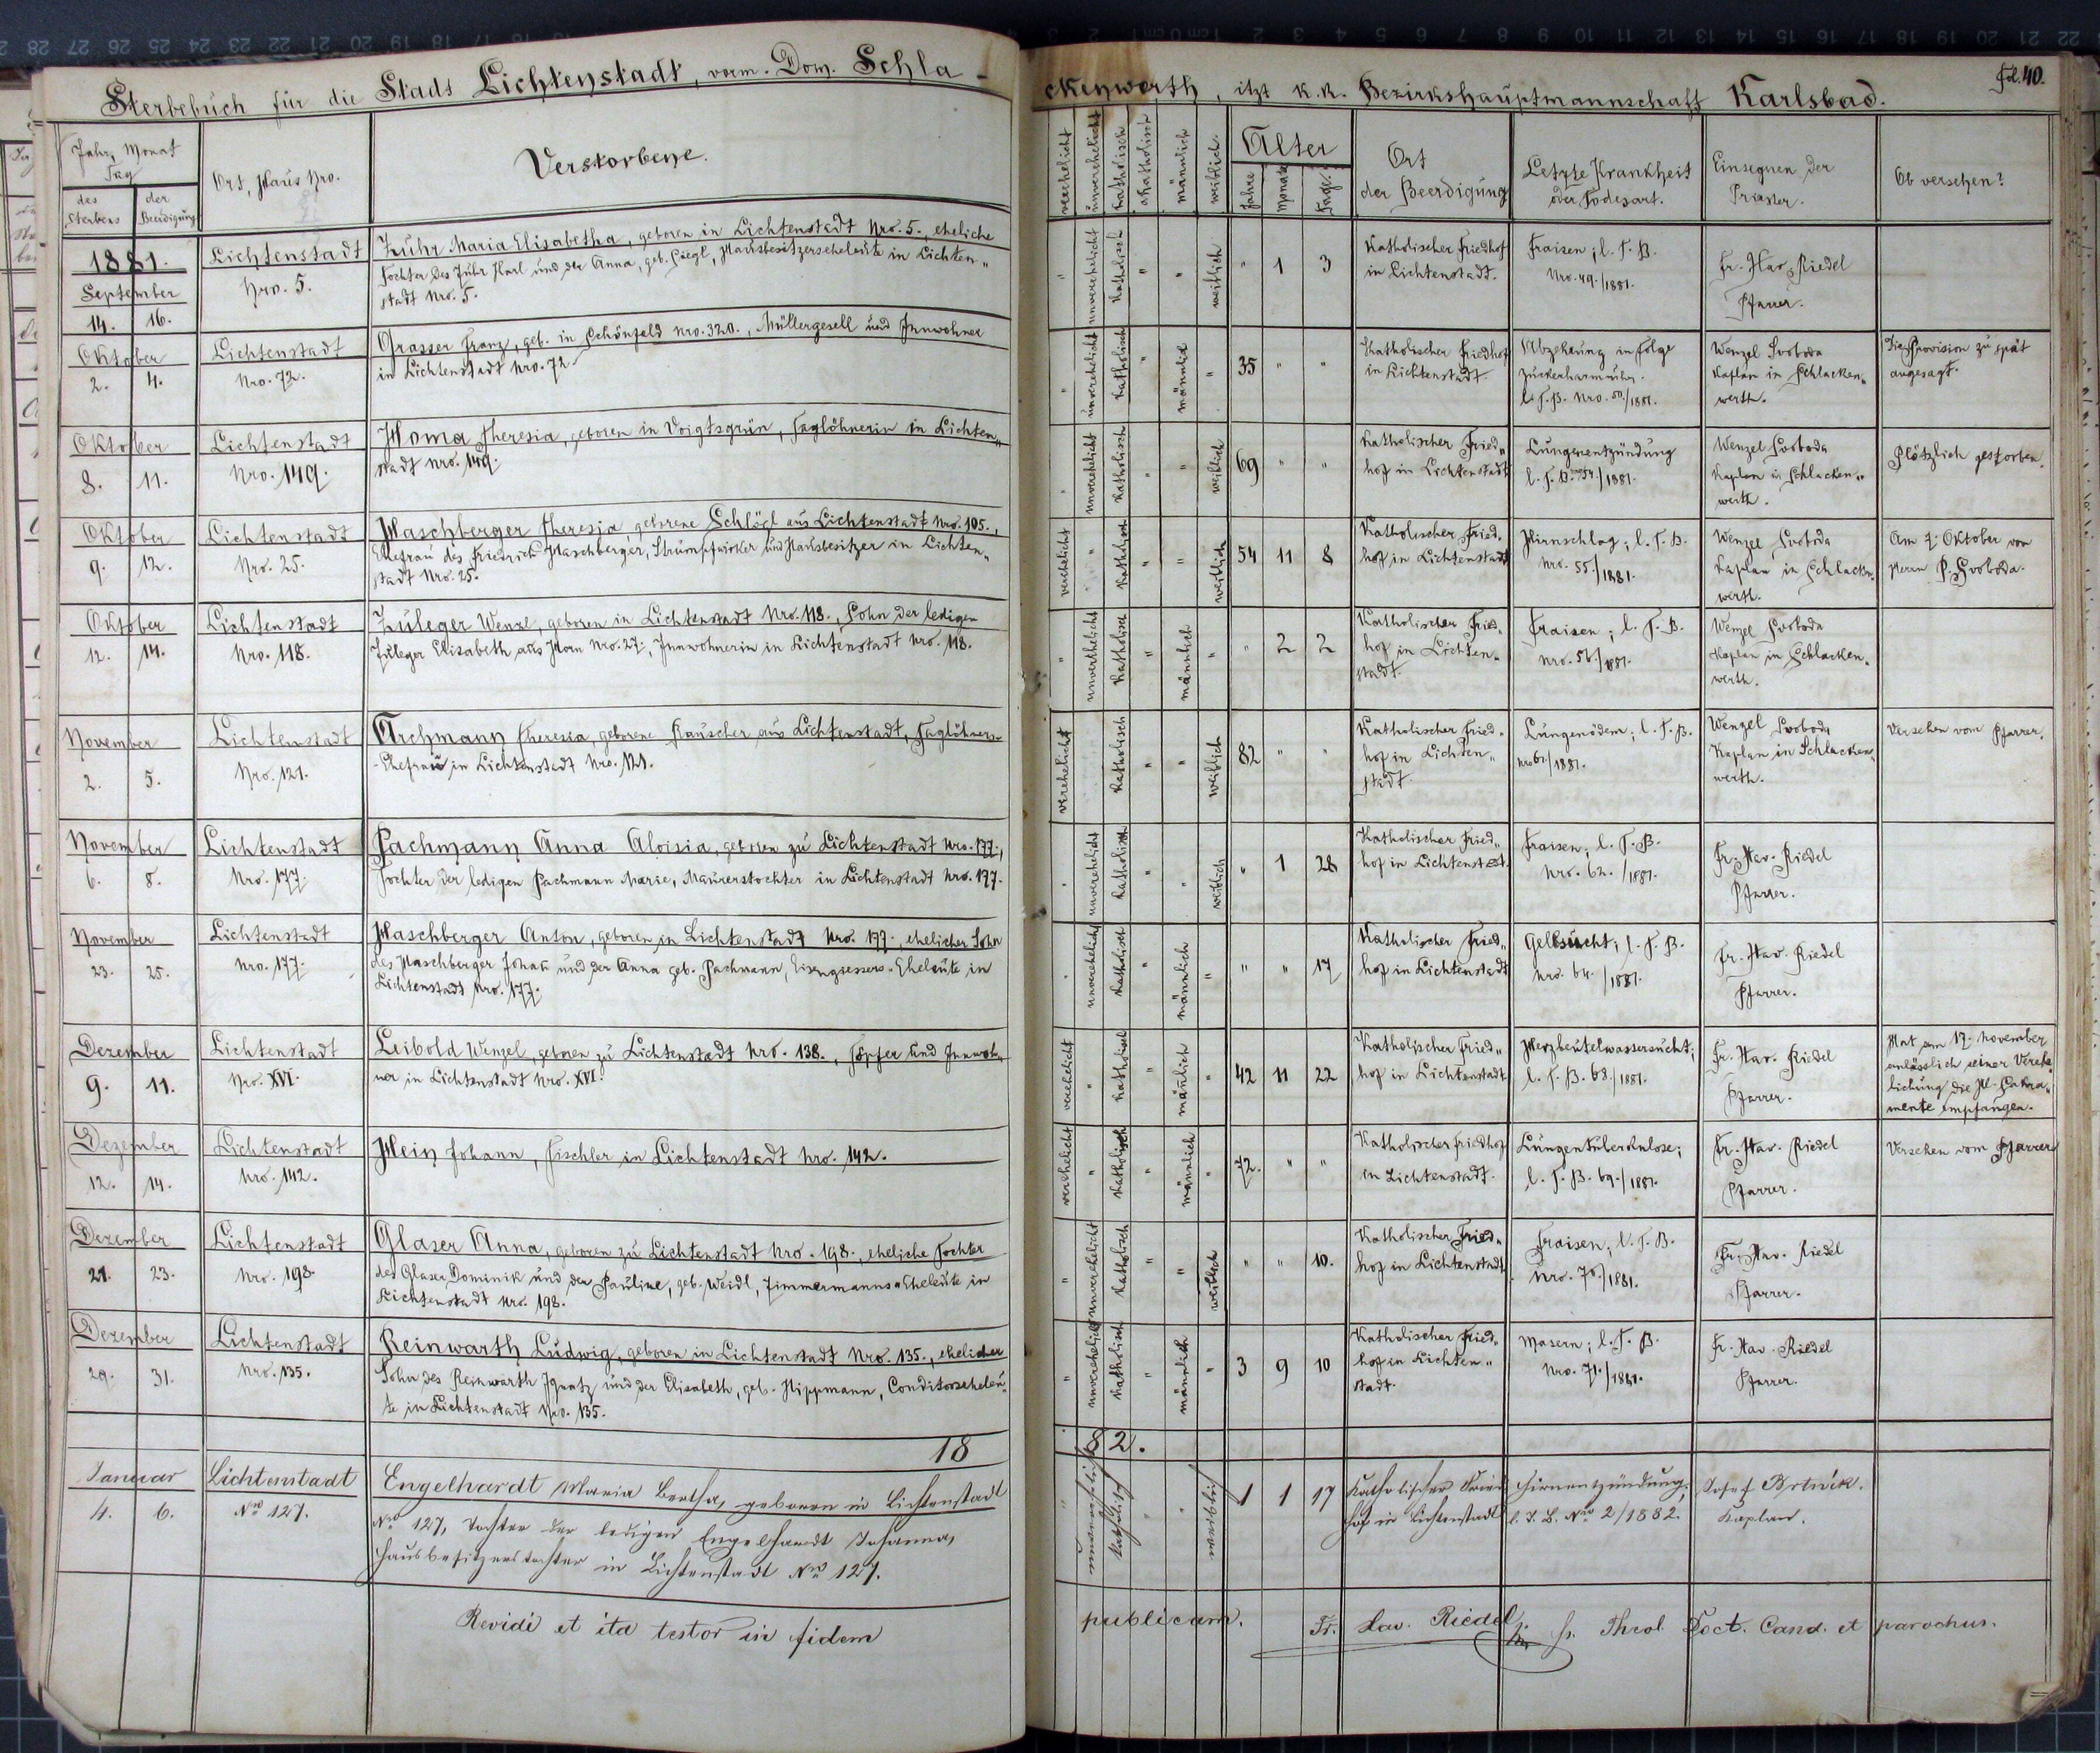 Sterbebuch für die Stadt Lichtenstadt, vorm. Dom. Schla-
ckenwerth, itzt k.k. Bezirkshauptmannschaft Karlsbad.
Fol. 40.
Jahr, Monat
Tag
des Sterbens
der Beerdigung
Ort, Haus Nro.
Verstorbene.
verehelicht
unverehelicht
katholisch
akatholisch
männlich
weiblich
Alter
Jahre
Monate
Tage
Ort
der Beerdigung
Letzte Krankheit
oder Todesart.
Einsegnender
Priester.
Ob versehen?
1881.
September
14. 16.
Lichtenstadt
Nro. 5.
Zuhr Maria Elisabetha, geboren in Lichtenstadt Nro. 5., eheliche
Tochter des Zuhr Karl und der Anna, geb. Hausbesitzerseheleute in Lichten„
stadt Nro. 5.
" unverehelicht katholisch " " weiblich " 1 3
Katholischer Friedhof
in Lichtenstadt.
Fraisen; l. T. B.
Nro. 49./1881.
Fr. Xav. Riedel
Pfarrer.
Oktober
2. 4.
Lichtenstadt
Nro. 72.
Grasser Franz, geb. in Schönfeld Nro. 320., Müllergesell und Innwohner
in Lichtenstadt Nro. 72.
" unverehelicht katholisch " männlich " 35 " "
Katholischer Friedhof
in Lichtenstadt.
Abzehrung in folge
Zuckerharnruhr.
l. T. B. Nro. 50./1881.
Wenzel Svoboda
Kaplan in Schlacken„
werth.
Die Provision zu spät
angesagt.
Oktober
8. 11.
Lichtenstadt
Nro. 149.
Homa Theresia, geboren in Voigtsgrün, Taglöhnerin in Lichten„
stadt Nro. 149.
" unverehelicht katholisch " " weiblich 69 " "
Katholischer Fried„
hof in Lichtenstadt
Lungenentzündung
l. T. B. Nro 54./1881.
Wenzel Svoboda
Kaplan in Schlacken„
werth.
Plötzlich gestorben.
Oktober
9. 12.
Lichtenstadt
Nro. 25.
Haschberger Theresia geborene Schlögl aus Lichtenstadt Nro. 105.,
Ehefrau des Friedrich Haschberger, Strumpfwirker und Hausbesitzer in Lichten„
stadt Nro. 25.
verehelicht " katholisch " " weiblich 54 11 8
Katholischer Fried„
hof in Lichtenstadt
Hirnschlag; l. T. B.
Nro. 55./1881.
Wenzel Svoboda
Kaplan in Schlacken„
werth.
Am 7. Oktober von
Herrn P. Svoboda.
Oktober
12. 14.
Lichtenstadt
Nro. 118.
Zuleger Wenzl, geboren in Lichtenstadt Nro. 118., Sohn der ledigen
Zuleger Elisabeth aus Horn Nro. 27., Innwohnerin in Lichtenstadt Nro. 118.
" unverehelicht katholisch " männlich " " 2 2
Katholischer Fried„
hof in Lichten„
stadt.
Fraisen; l. T. B.
Nro. 56./1881.
Wenzel Svoboda
Kaplan in Schlacken„
werth.
November
2. 5.
Lichtenstadt
Nro. 121.
Archmann Theresia, geborene Rauscher aus Lichtenstadt, Taglöhners-
-Ehefrau in Lichtenstadt Nro. 121.
verehelicht katholisch " " weiblich 82 " "
Katholischer Fried„
hof in Lichten„
stadt
Lungenödem; l. T. B.
Nro 61./1881.
Wenzel Svoboda
Kaplan in Schlacken„
werth.
Versehen vom Pfarrer.
November
6. 8.
Lichtenstadt
Nro. 177.
Pachmann Anna Aloisia, geboren zu Lichtenstadt Nro. 177.,
Tochter der ledigen Pachmann Marie, Maurerstochter in Lichtenstadt Nro. 177.
" unverehelicht katholisch " " weiblich " 1 28
Katholischer Fried„
hof in Lichtenstadt.
Fraisen; l. T. B.
Nro. 62./1881.
Fr. Xav. Riedel
Pfarrer.
November
23. 25.
Lichtenstadt
Nro. 177.
Haschberger Anton, geboren in Lichtenstadt Nro. 177., ehelicher Sohn
des Haschberger und der Anna geb. Pachmann, Eheleute in
Lichtenstadt Nro. 177.
" unverehelicht katholisch " männlich " " " 17
Katholischer Fried„
hof in Lichtenstadt
Gelbsucht; l. T. B.
Nro. 64./1881.
Fr. Xav. Riedel
Pfarrer.
Dezember
9. 11.
Lichtenstadt
Nro. XVI.
Leibold Wenzel, geboren zu Lichtenstadt Nro. 138., Töpfer und Innwoh„
ner in Lichtenstadt Nro. XVI.
verehelicht " katholisch " männlich " 42 11 22
Katholischer Fried„
hof in Lichtenstadt
Herzbeutelwassersucht;
l. T. B. 68./1881.
Fr. Xav. Riedel
Pfarrer.
Hat am 17. November
anlässlich seiner Verehe„
lichung die hl. Sakra„
mente empfangen.
Dezember
12. 14.
Lichtenstadt
Nro. 142.
Hein Johann, Tischler in Lichtenstadt Nro. 142.
verehelicht " katholisch " männlich " 72. " "
Katholischer Friedhof
in Lichtenstadt.
Lungentuberkulose;
l. T. B. 69./1881.
Fr. Xav. Riedel
Pfarrer.
Versehen vom Pfarrer
Dezember
21. 23.
Lichtenstadt
Nro. 198.
Glaser Anna, geboren zu Lichtenstadt Nro. 198., eheliche Tochter
des Glaser Dominik und der Pauline, geb. Weidl, Zimmermanns-Eheleute in
Lichtenstadt Nro. 198.
" unverehelicht katholisch " " weiblich " " 10.
Katholischer Fried„
hof in Lichtenstadt
Fraisen; l. T. B.
Nro. 70./1881.
Fr. Xav. Riedel
Pfarrer.
Dezember
29. 31.
Lichtenstadt
Nro. 135.
Reinwarth Ludwig, geboren in Lichtenstadt Nro. 135., ehelicher
Sohn des Reinwarth Ignatz und der Elisabeth, geb. Hippmann, Conditorseheleu„
te in Lichtenstadt Nro. 135.
" unverehelicht katholisch " männlich " 3 9 10
Katholischer Fried„
hof in Lichten„
stadt.
Masern; l. T. B.
Nro. 71./1881.
Fr. Xav. Riedel
Pfarrer.
18 82.
Januar
4. 6.
Lichtenstadt
Nro 127.
Engelhardt Maria Bertha, geboren in Lichtenstadt
Nro 127, Tochter der ledigen Engelhardt Johanna,
Hausbesitzerstochter in Lichtenstadt Nro 127.
" unverehelicht katholisch " " weiblich 1 1 17
Katholischer Fried
hof in Lichtenstadt
Hirnentzündung,
l. T. B. Nro 2/1882.
Josef
Kaplan.
Revidi et ita testor in fidem publicam. Fr. Xav. Riedel, Theol. Doct. Cand. et parochus.